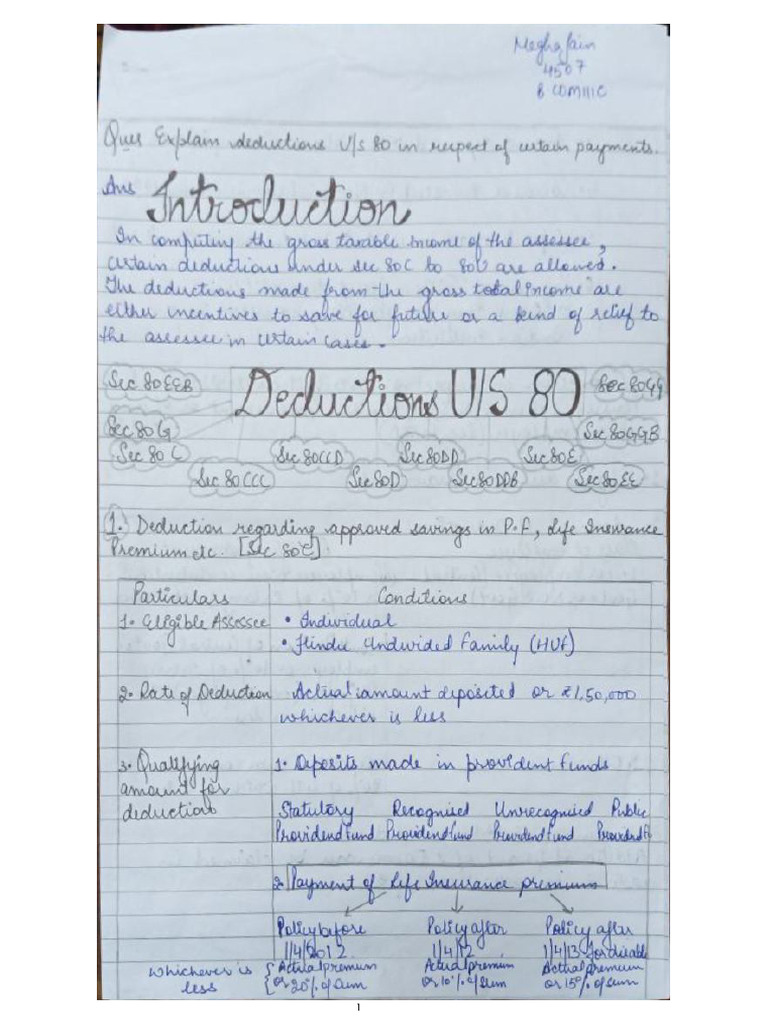 Megha Jain
4507
B COM III C
Ques Explain deductions U/s 80 in respect of certain payments.
Ans Introduction
In computing the gross taxable income of the assessee,
certain deductions under sec 80C to 80U are allowed.
The deductions made from the gross total income are
either incentives to save for future or a kind of relief to
the assessee in certain cases.
Sec 80EEB Deductions U/S 80 Sec 80GG
Sec 80G Sec 80GGB
Sec 80C Sec 80CCD Sec 80DD Sec 80E
Sec 80CCC Sec 80D Sec 80DDB Sec 80EE
1. Deduction regarding approved savings in P.F, Life Insurance
Premium etc. [Sec 80C]
Particulars Conditions
1. Eligible Assessee • Individual
• Hindu Undivided Family (HUF)
2. Rate of Deduction Actual amount deposited or ₹1,50,000
whichever is less
3. Qualifying 1. Deposits made in provident funds
amount for
deduction Statutory Recognised Unrecognised Public
Providend Fund Providend Fund Providend Fund Providend F
2. Payment of Life Insurance premium
Policy before Policy after Policy after
1/4/2012 1/4/12 1/4/13 for disable
Whichever is { Actual premium Actual premium Actual premium
less { or 20% of Sum or 10% of Sum or 15% of sum
1